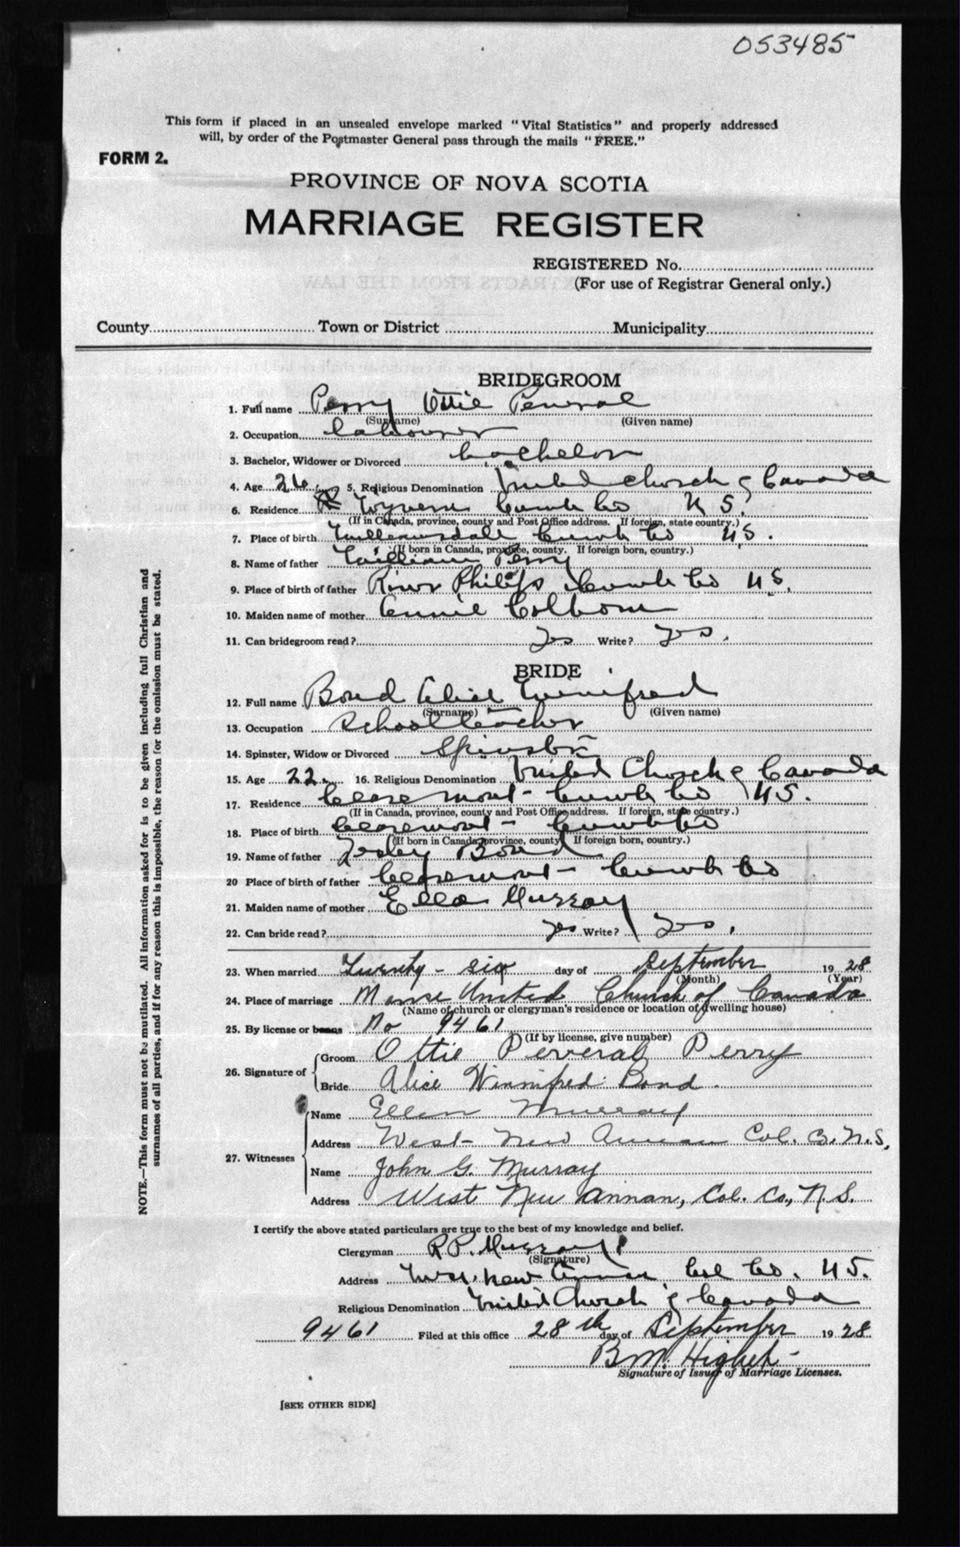 053485
This form if placed in an unsealed envelope marked "Vital Statistics" and properly addressed
will, by order of the Postmaster General pass through the mails "FREE."
FORM 2.
PROVINCE OF NOVA SCOTIA
MARRIAGE REGISTER
REGISTERED No.
(For use of Registrar General only.)
County Town or District Municipality
BRIDEGROOM
1. Full name Perry Ottie
(Surname) (Given name)
2. Occupation labourer
3. Bachelor, Widower or Divorced bachelor
4. Age 26 5. Religious Denomination United Church of Canada
6. Residence Wyvern Cumb Co N S.
(If in Canada, province, county and Post Office address. If foreign, state country.)
7. Place of birth Williamsdale Cumb Co N S.
(If born in Canada, province, county. If foreign born, country.)
8. Name of father William Perry
9. Place of birth of father River Philip Cumb Co N S.
10. Maiden name of mother Annie Colborn
11. Can bridegroom read? Yes Write? Yes.
BRIDE
12. Full name Bond Alice Winnifred
(Surname) (Given name)
13. Occupation School teacher
14. Spinster, Widow or Divorced Spinster
15. Age 22 16. Religious Denomination United Church of Canada
17. Residence Claremont - Cumb Co N S.
(If in Canada, province, county and Post Office address. If foreign, state country.)
18. Place of birth Claremont - Cumb Co
(If born in Canada, province, county. If foreign born, country.)
19. Name of father Bond
20 Place of birth of father Claremont - Cumb Co
21. Maiden name of mother Ella Murray
22. Can bride read? Yes Write? Yes.
23. When married Twenty - six day of September 1928
(Month) (Year)
24. Place of marriage Manse United Church of Canada
(Name of church or clergyman's residence or location of dwelling house)
25. By license or banns No 9461
(If by license, give number)
26. Signature of
Groom Ottie Perveral Perry
Bride Alice Winnifred Bond.
27. Witnesses
Name Ellen Murray
Address West New Annan Col. C. N.S.
Name John G. Murray
Address West New Annan, Col. Co., N.S.
I certify the above stated particulars are true to the best of my knowledge and belief.
Clergyman R.P. Murray
(Signature)
Address West New Annan, Col Co. N S.
Religious Denomination United Church of Canada
9461 Filed at this office 28th day of September 1928
B.M.
Signature of Issuer of Marriage Licenses.
[SEE OTHER SIDE]
NOTE.—This form must not be mutilated. All information asked for is to be given including full Christian and
surnames of all parties, and if for any reason this is impossible, the reason for the omission must be stated.